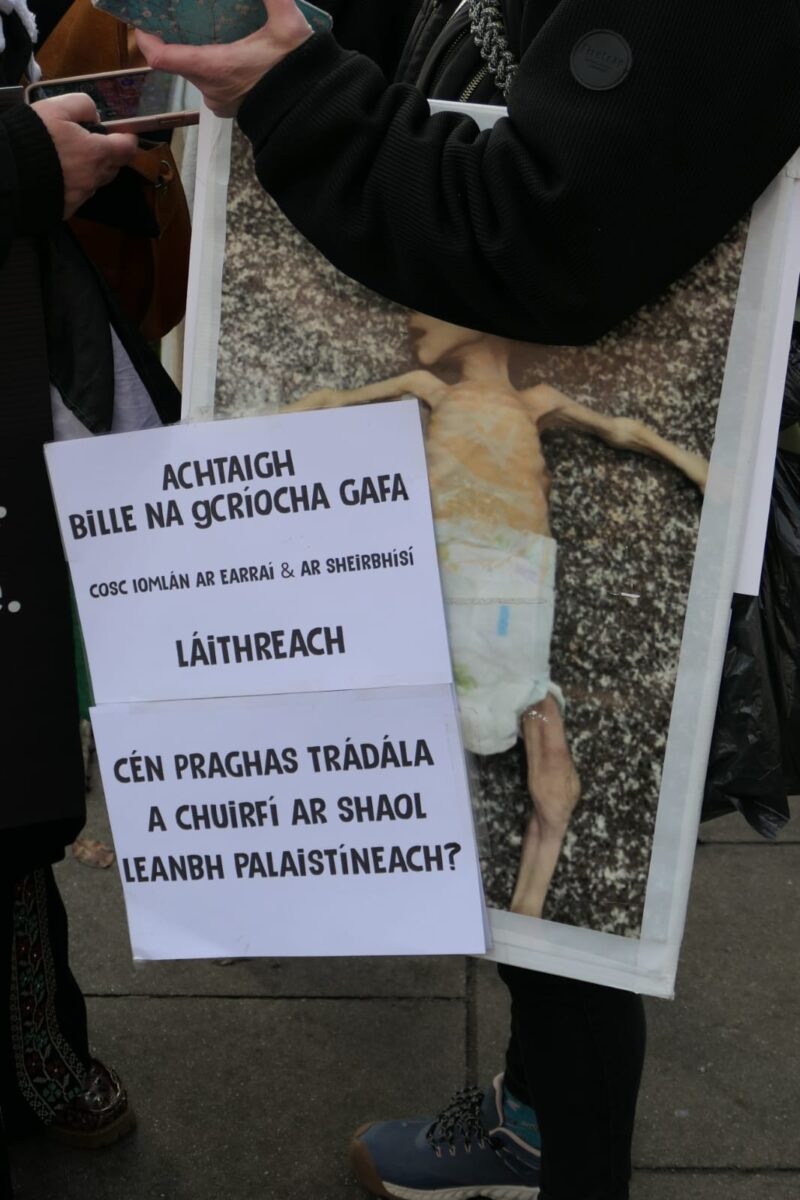 ACHTAIGH
BILLE NA gCRÍOCHA GAFA
COSC IOMLÁN AR EARRAÍ & AR SHEIRBHÍSÍ
LÁITHREACH
CÉN PRAGHAS TRÁDÁLA
A CHUIRFÍ AR SHAOL
LEANBH PALAISTÍNEACH?